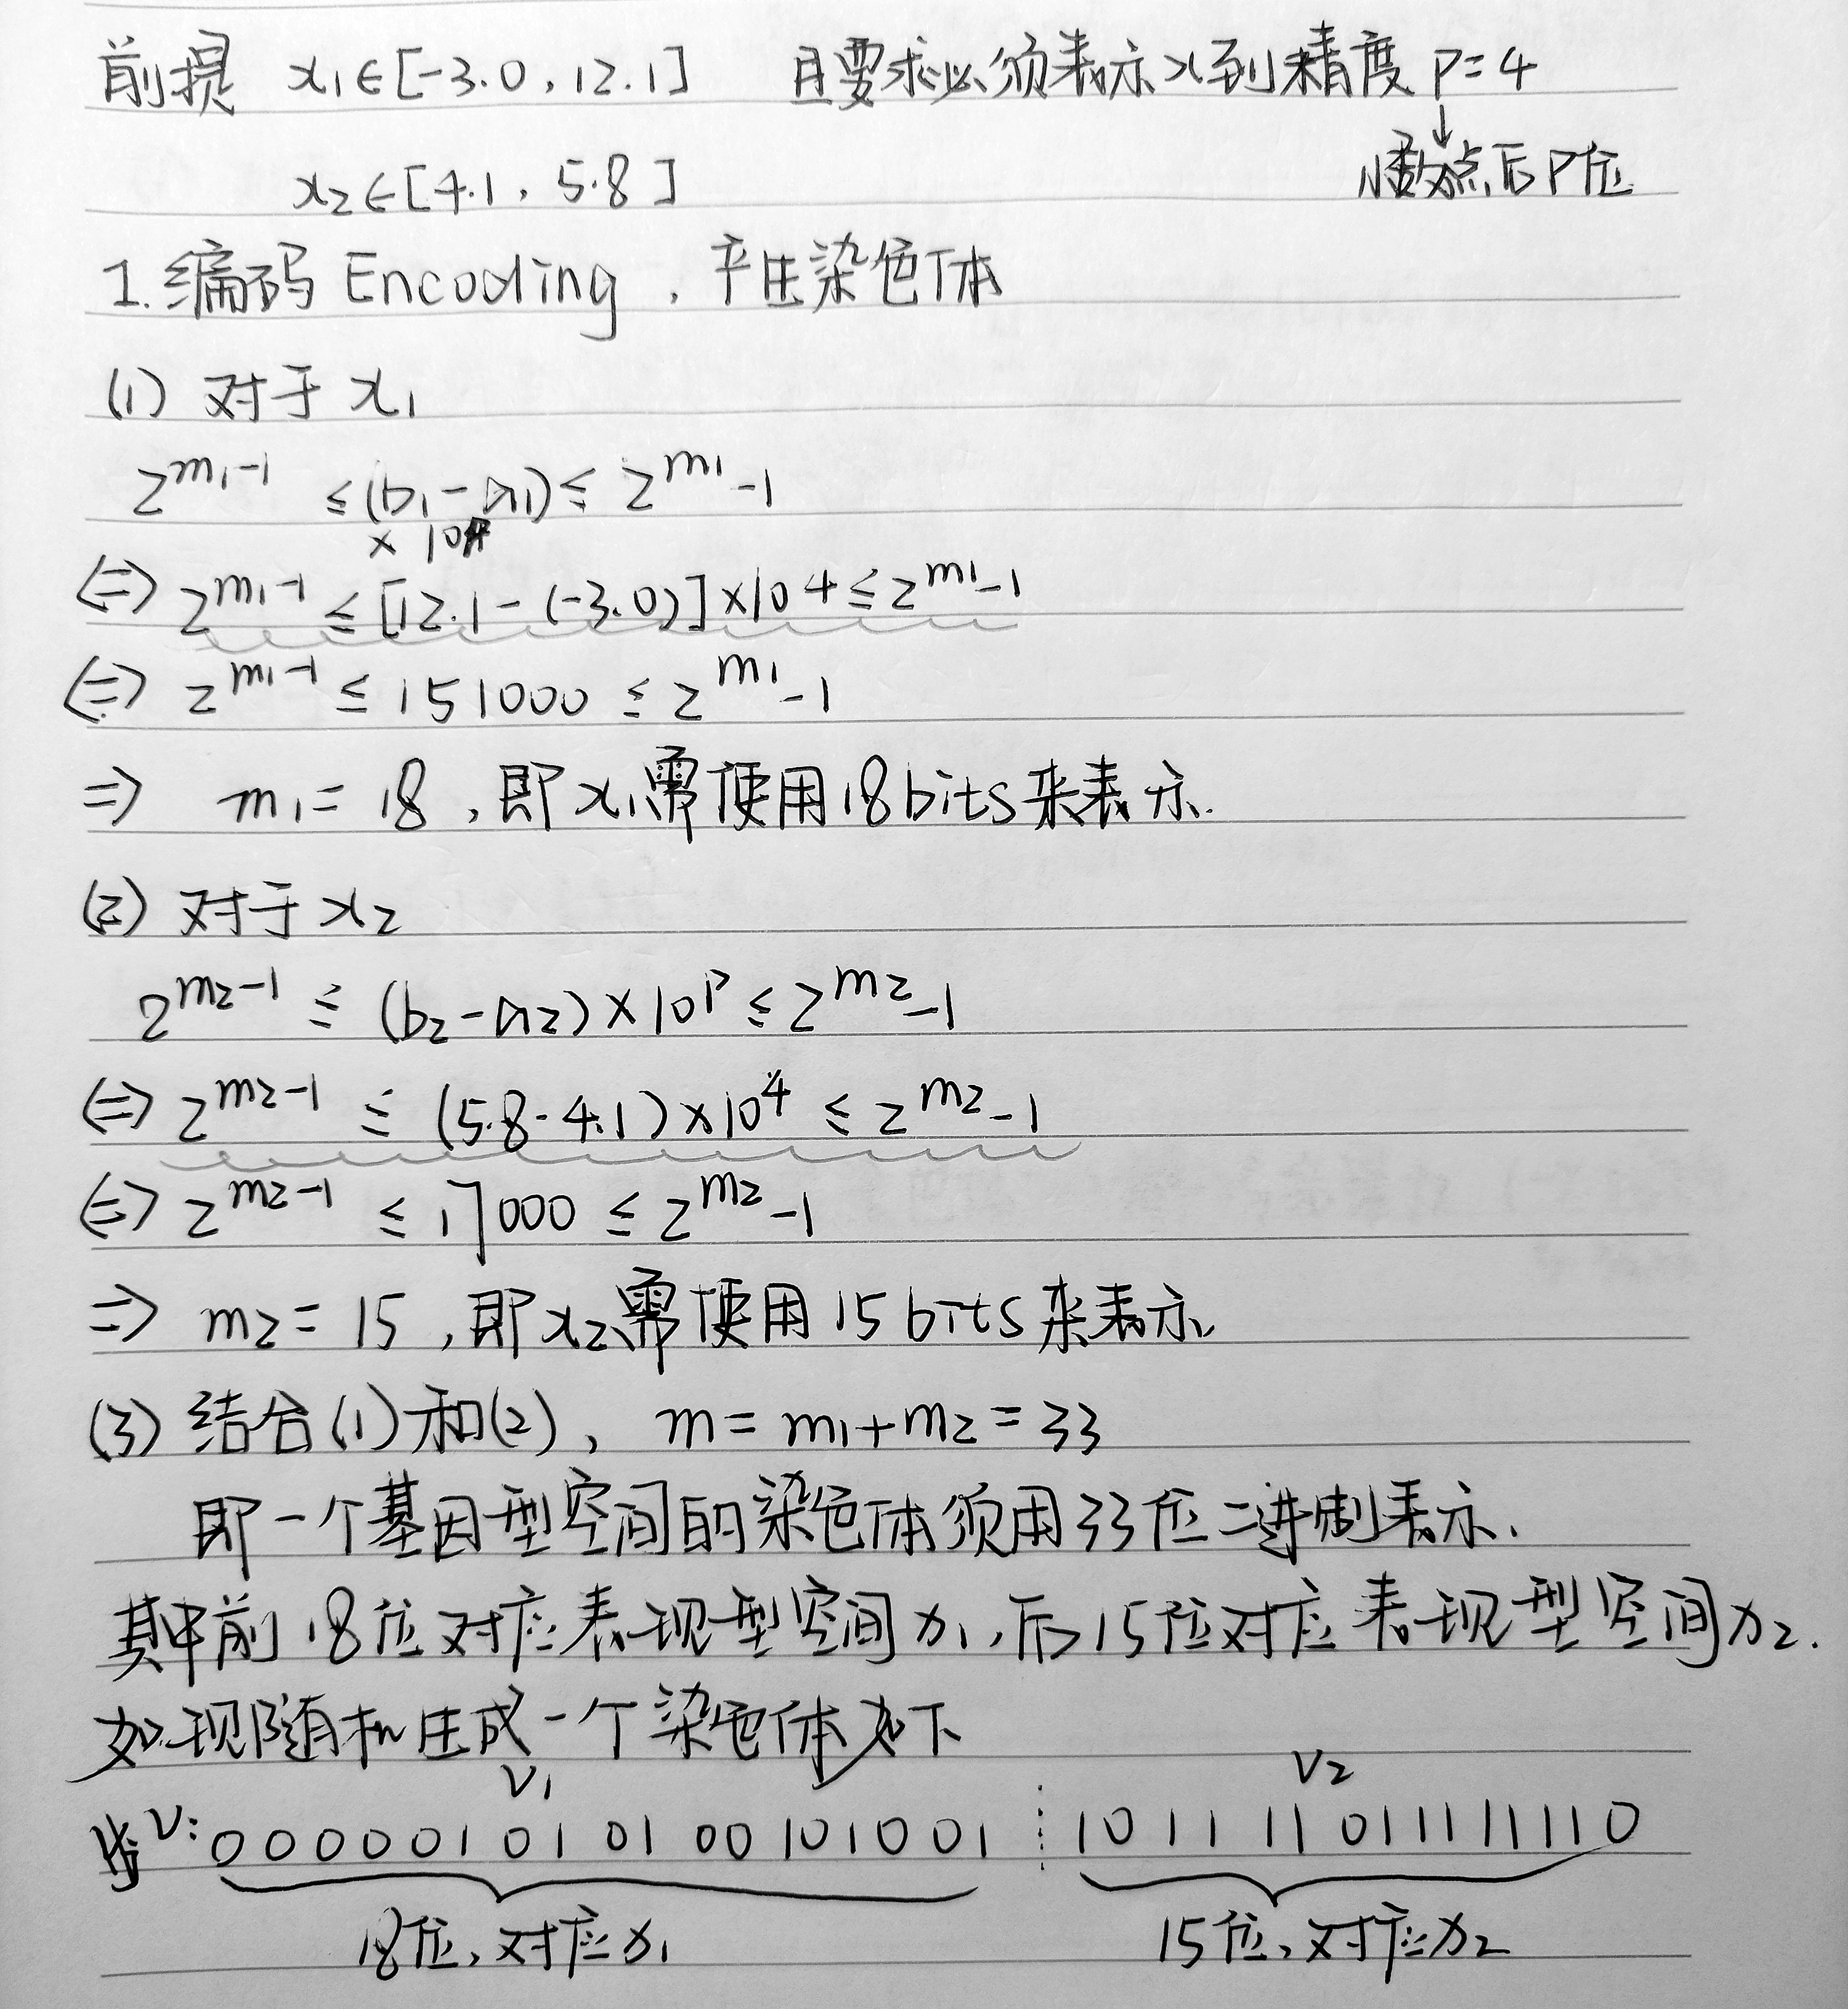 前提 x₁∈[-3.0,12.1] 且要求必须表示x到精度 P=4
↓
x₂∈[4.1,5.8] 小数点后P位
1.编码 Encoding,产生染色体
(1) 对于 x₁
2^{m₁-1} ≤(b₁-a₁)≤ 2^{m₁}-1
× 10
⇔ 2^{m₁-1} ≤ [12.1-(-3.0)]×10^4 ≤ 2^{m₁}-1
⇔ 2^{m₁-1} ≤ 151000 ≤ 2^{m₁}-1
⇒ m₁=18,即x₁需使用18bits来表示.
(2) 对于x₂
2^{m₂-1} ≤ (b₂-a₂)×10^P ≤ 2^{m₂}-1
⇔ 2^{m₂-1} ≤ (5.8-4.1)×10^4 ≤ 2^{m₂}-1
⇔ 2^{m₂-1} ≤ 17000 ≤ 2^{m₂}-1
⇒ m₂=15,即x₂需使用15bits来表示
(3) 结合(1)和(2), m=m₁+m₂=33
即一个基因型空间的染色体须用33位二进制表示.
其中前18位对应表现型空间x₁,后15位对应表现型空间x₂.
如现随机生成一个染色体如下
v₁ v₂
v: 000001010100101001 ⋮ 101111011111110
18位,对应x₁ 15位,对应x₂